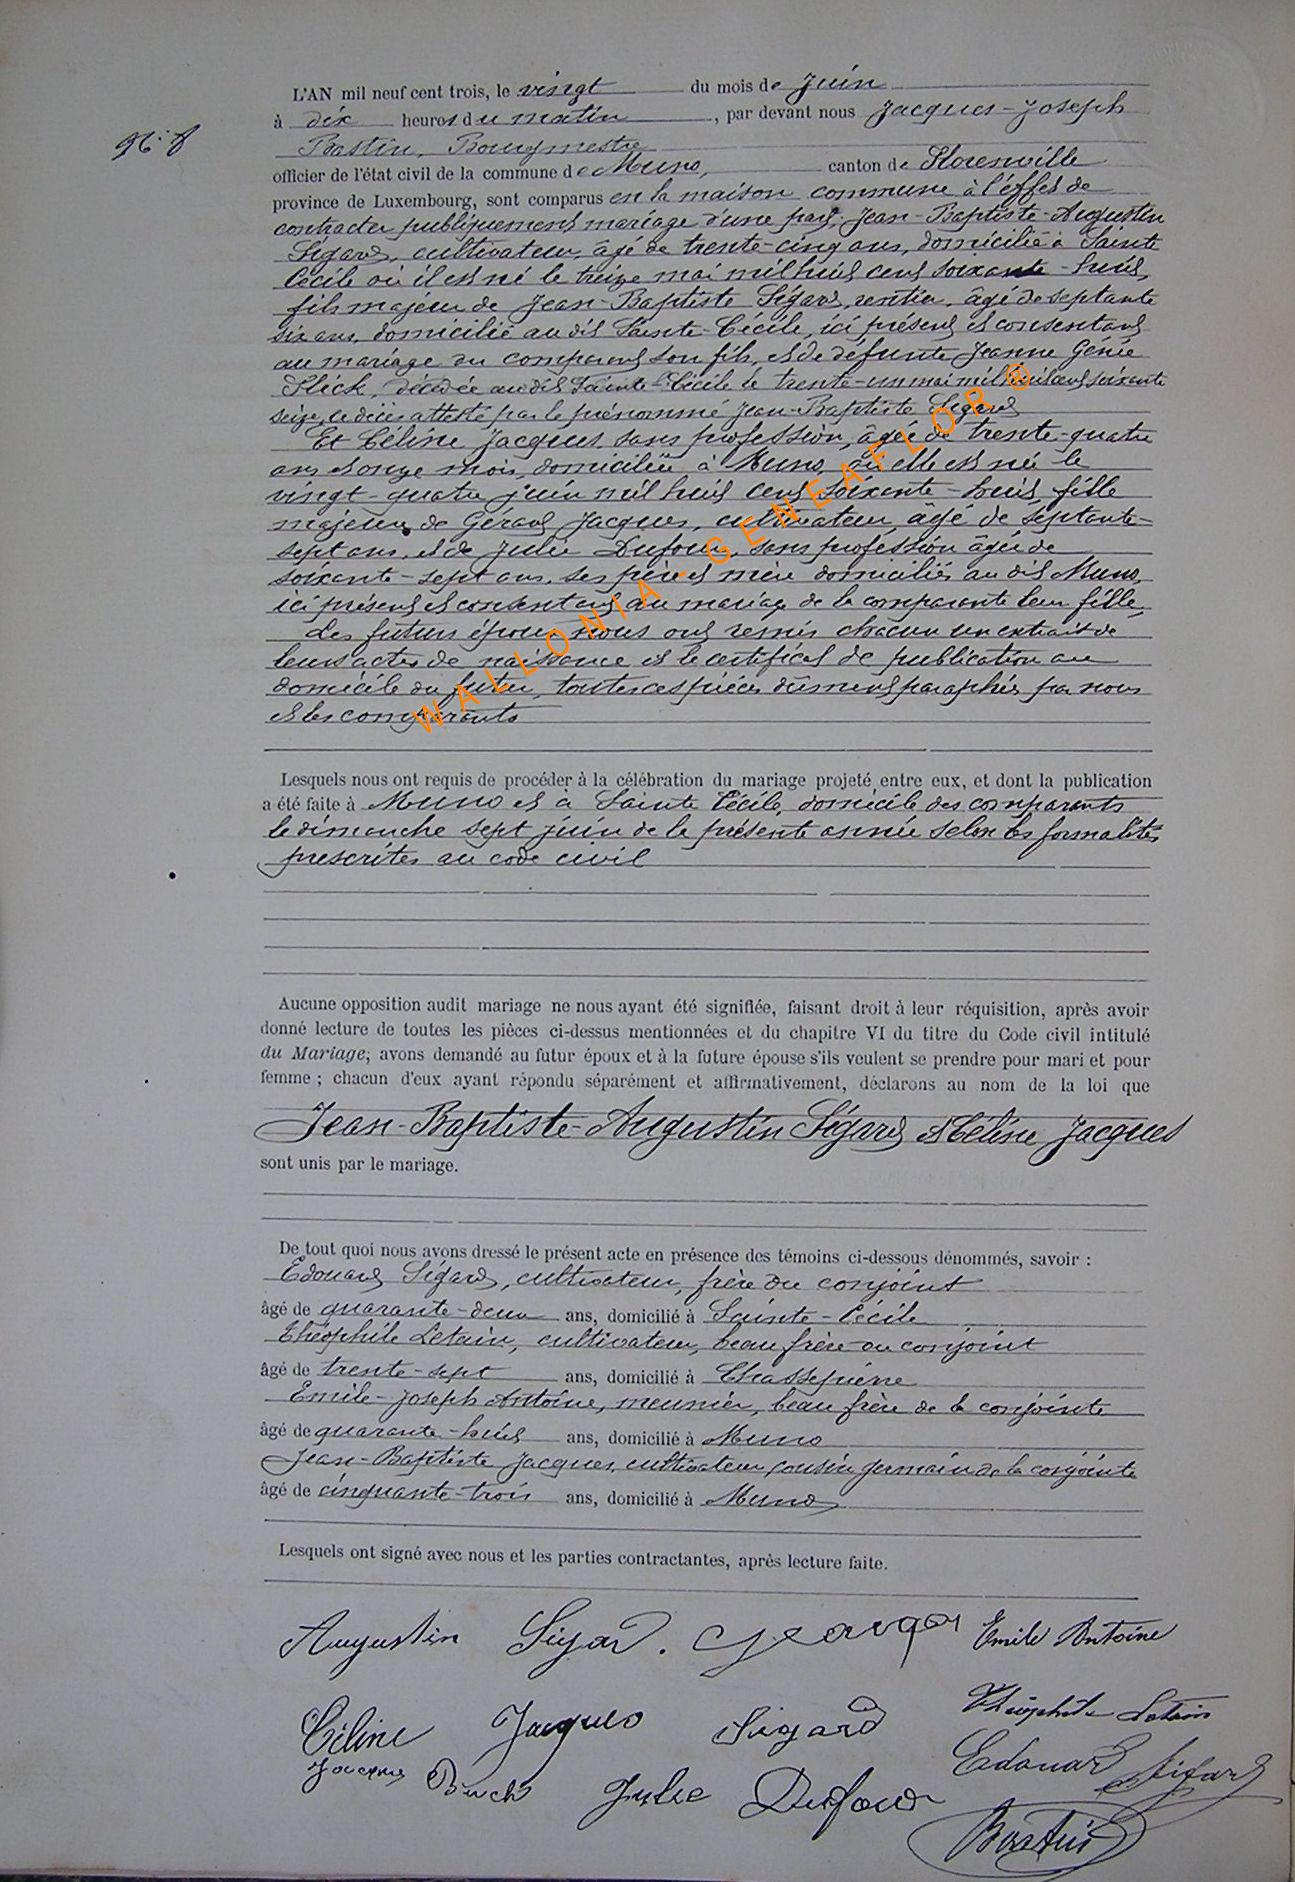 L'AN mil neuf cent trois, le vingt du mois de Juin
à dix heures du matin, par devant nous Jacques-Joseph
N° 8
Bastin, Bourgmestre
officier de l'état civil de la commune de Muno, canton de Florenville
province de Luxembourg, sont comparus en la maison commune à l'effet de
contracter publiquement mariage d'une part, Jean-Baptiste-Augustin
Sigard, cultivateur, âgé de trente-cinq ans, domicilié à Sainte
Cécile où il est né le treize mai mil huit cent soixante-huit,
fils majeur de Jean-Baptiste Sigard, rentier, âgé de septante
six ans, domicilié au dit Sainte-Cécile, ici présent et consentant
au mariage du comparant son fils, et de défunte Jeanne Génie
décédée au dit Sainte-Cécile le trente-un mai mil huit cent soixante
seize, ce décès attesté par le prénommé Jean-Baptiste Sigard
Et Céline Jacques, sans profession, âgée de trente-quatre
ans et onze mois, domiciliée à Muno, où elle est née le
vingt-quatre juin mil huit cent soixante-huit, fille
majeure de Gérard Jacques, cultivateur, âgé de septante-
sept ans, et de Julie Dufour, sans profession âgée de
soixante-sept ans, ses père et mère domiciliés au dit Muno,
ici présents et consentant au mariage de la comparante leur fille,
Les futurs époux nous ont remis chacun un extrait de
leurs actes de naissance et le certificat de publication au
domicile du futur, toutes ces pièces dûment paraphées par nous
et les comparants
Lesquels nous ont requis de procéder à la célébration du mariage projeté entre eux, et dont la publication
a été faite à Muno et à Sainte Cécile, domicile des comparants
le dimanche sept juin de la présente année selon les formalités
prescrites au code civil
Aucune opposition audit mariage ne nous ayant été signifiée, faisant droit à leur réquisition, après avoir
donné lecture de toutes les pièces ci-dessus mentionnées et du chapitre VI du titre du Code civil intitulé
du Mariage, avons demandé au futur époux et à la future épouse s'ils veulent se prendre pour mari et pour
femme ; chacun d'eux ayant répondu séparément et affirmativement, déclarons au nom de la loi que
Jean-Baptiste-Augustin Sigard et Céline Jacques
sont unis par le mariage.
De tout quoi nous avons dressé le présent acte en présence des témoins ci-dessous dénommés, savoir :
Edouard Sigard, cultivateur, frère du conjoint
âgé de quarante-deux ans, domicilié à Sainte-Cécile
Théophile Letain, cultivateur, beau frère du conjoint
âgé de trente-sept ans, domicilié à Chassepierre
Emile-Joseph Antoine, meunier, beau frère de la conjointe
âgé de quarante-huit ans, domicilié à Muno
Jean-Baptiste Jacques, cultivateur, cousin germain de la conjointe
âgé de cinquante-trois ans, domicilié à Muno
Lesquels ont signé avec nous et les parties contractantes, après lecture faite.
Augustin Sigard. Emile Antoine
Céline Jacques Sigard Théophile Letain
Jacques Julie Dufour Edouard Sigard
Bastin
WALLONIA-GENEAFLOR ®